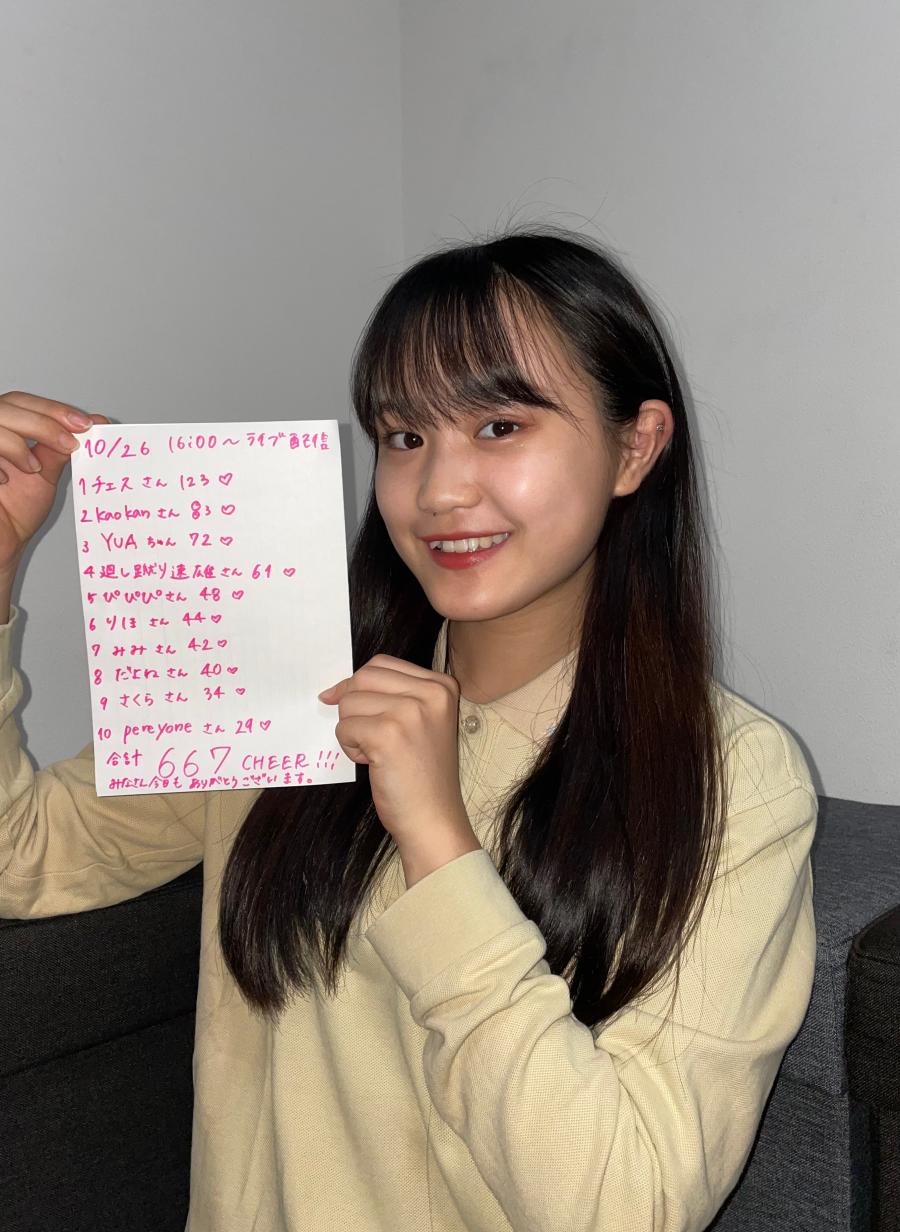 10/26 16:00〜ライブ配信
1 チェスさん 123♡
2 kaokanさん 83♡
3 YUAちゃん 72♡
4 廻し蹴り速雄さん 61♡
5 ぴぴぴさん 48♡
6 りほさん 44♡
7 みみさん 42♡
8 だよねさん 40♡
9 さくらさん 34♡
10 pereyoneさん 29♡
合計 667 CHEER!!!
みなさん今日もありがとうございます。